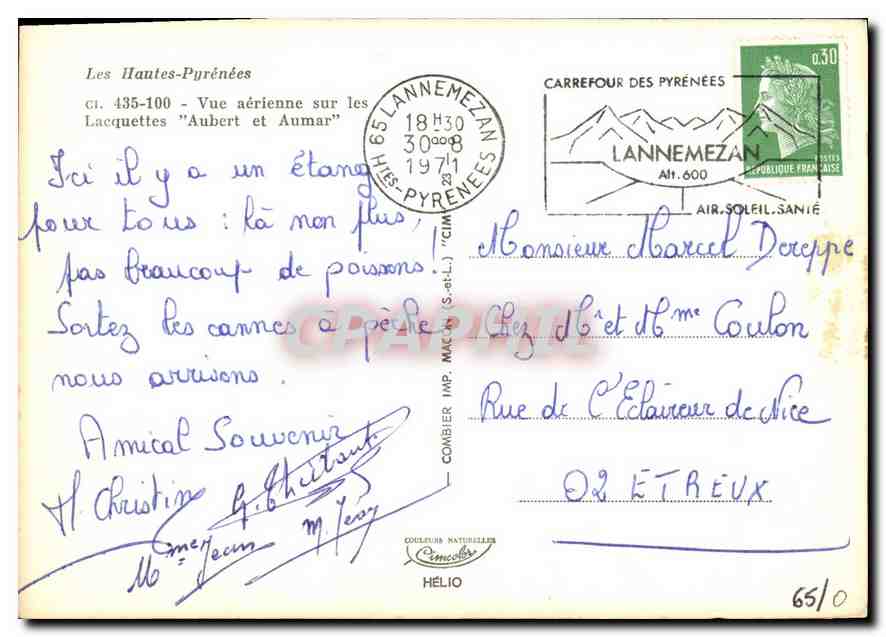 Les Hautes-Pyrénées
CI. 435-100 - Vue aérienne sur les
Lacquettes "Aubert et Aumar"
Ici il y a un étang
pour tous : là non plus,
pas beaucoup de poissons!
Sortez les cannes à pèche
nous arrivons.
Amical Souvenir
H. Christin
G.
Mme Jean
M.
65 LANNEMEZAN
18H30
30 8
1971
HTES-PYRENEES
CARREFOUR DES PYRÉNÉES
LANNEMEZAN
Alt. 600
AIR.SOLEIL.SANTÉ
0,30
POSTES
RÉPUBLIQUE FRANÇAISE
Monsieur Marcel Dereppe
Chez Mr et Mme Coulon
Rue de l'Eclaireur de Nice
02 ETREUX
COMBIER IMP. MACON (S.-et-L.) "CIM"
CPAPHIL
COULEURS NATURELLES
Cimcolor
HÉLIO
65/0